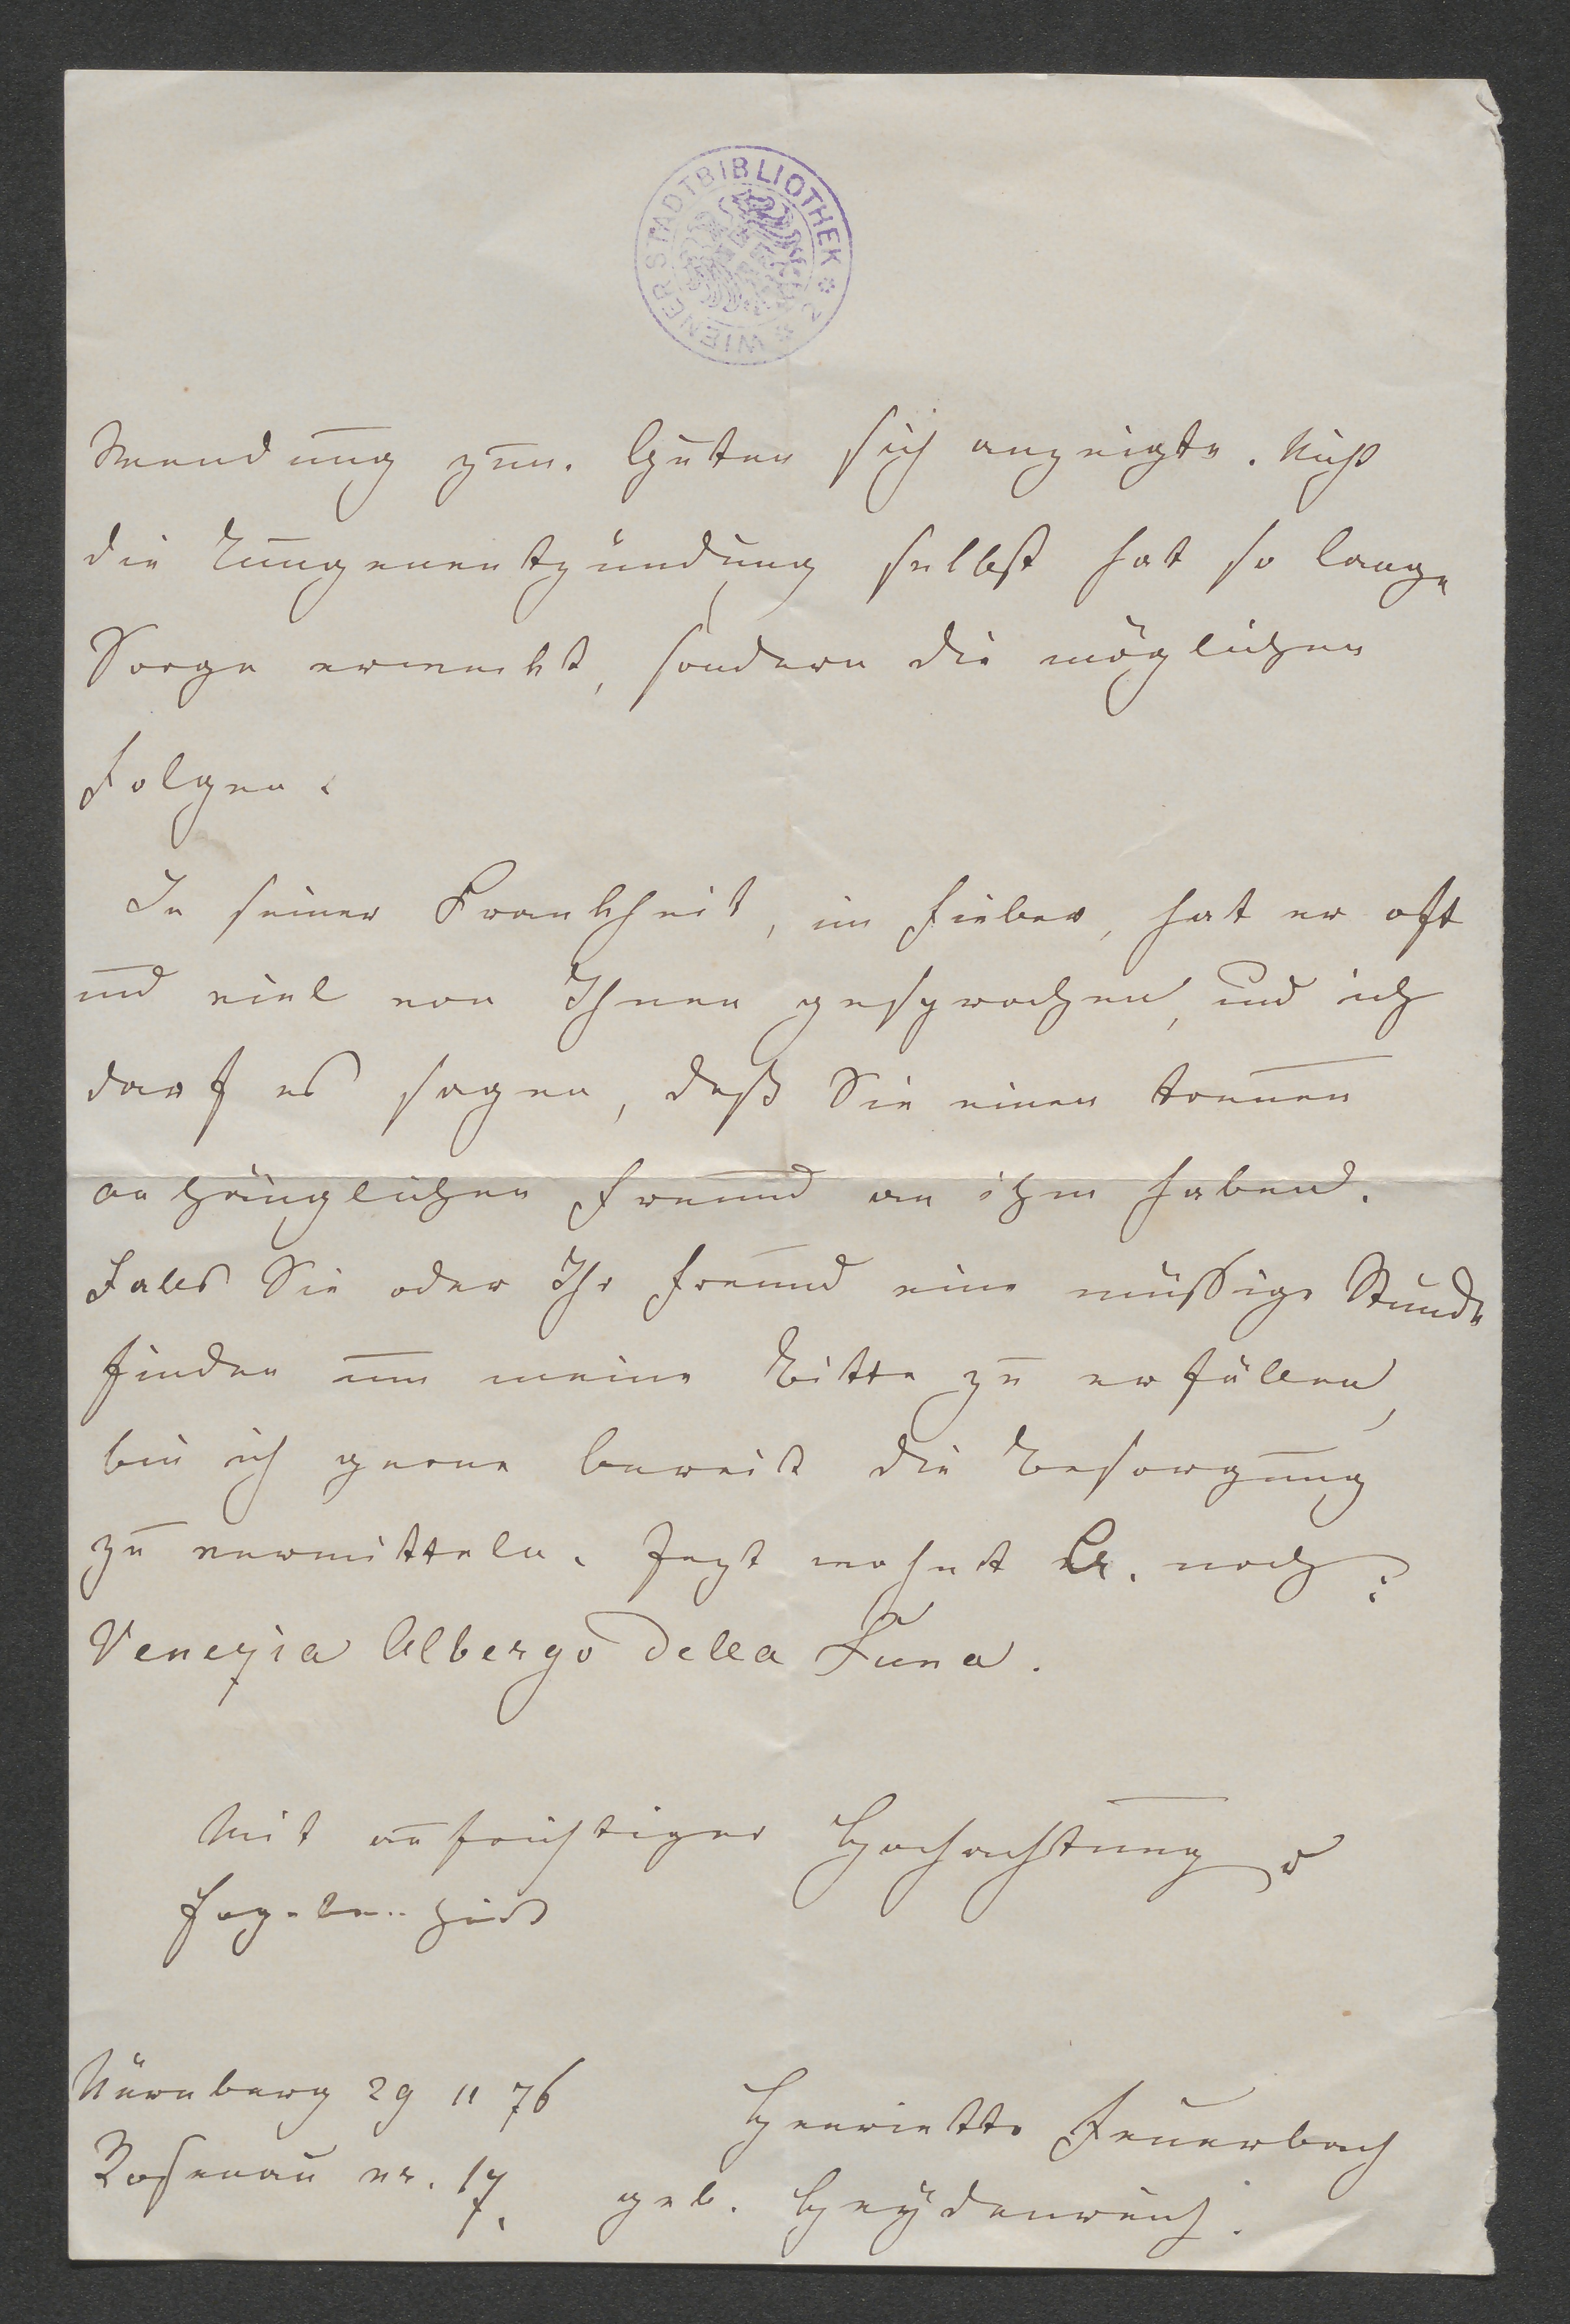 WIENER STADTBIBLIOTHEK
Wendung zum Guten sich anzeigte. Nicht
die Lungenentzündung selbst hat so lange
Sorge erweckt, sondern die möglichen
Folgen.
In seiner Krankheit, im Fieber, hat er oft
und viel von Ihnen gesprochen, und ich
darf es sagen, daß Sie einen treuen
anhänglichen Freund an ihm haben.
Falls Sie oder Ihr Freund eine müssige Stunde
finden um meine Bitte zu erfüllen,
bin ich gerne bereit die Besorgung
zu vermitteln. Jezt wohnt er noch:
Venezia Albergo della Luna.
Mit aufrichtiger Hochachtung
Nürnberg 29 11 76
Henriette Feuerbach
Rosenau nr. 17.
geb. Heydenreich.